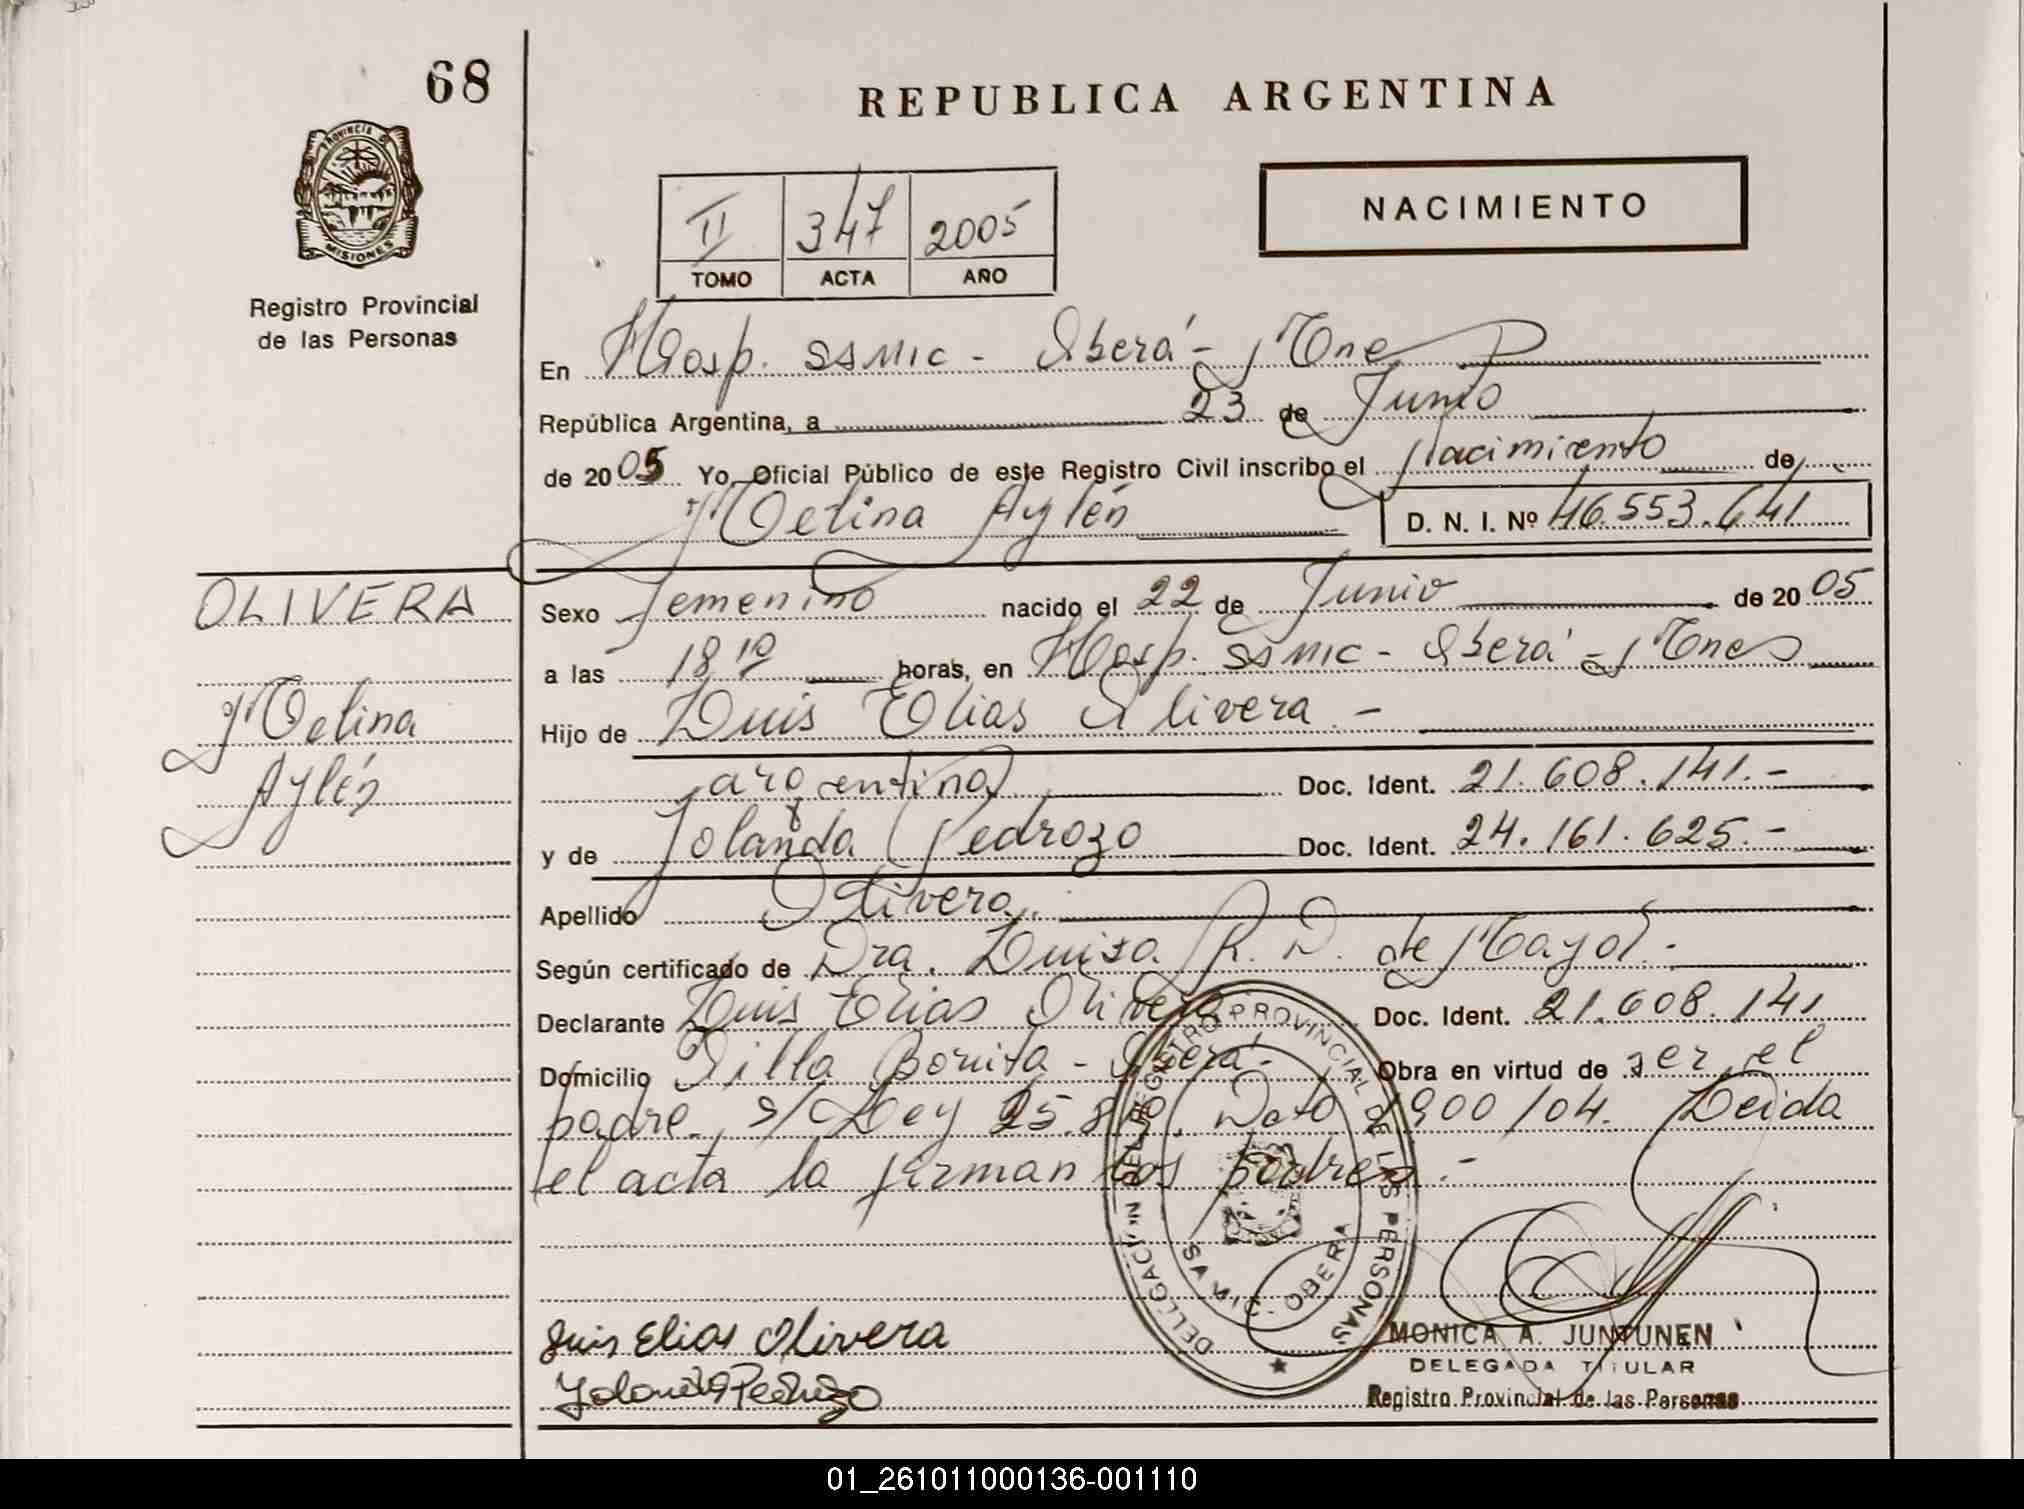 68
REPUBLICA ARGENTINA
PROVINCIA DE
MISIONES
Registro Provincial
de las Personas
NACIMIENTO
II 347 2005
TOMO ACTA AÑO
En Hosp. SAMIC - Oberá - Mnes
República Argentina, a 23 de Junio
de 2005 Yo Oficial Público de este Registro Civil inscribo el Nacimiento de
Melina Aylén D. N. I. Nº 46.553.641
OLIVERA
Melina
Aylén
Sexo Femenino nacido el 22 de Junio de 2005
a las 18 10 horas, en Hosp. SAMIC - Oberá - Mnes
Hijo de Luis Elias Olivera.-
argentino Doc. Ident. 21.608.141.-
y de Yolanda Pedrozo Doc. Ident. 24.161.625.-
Apellido Olivera.
Según certificado de Dra. Luisa R. D. de Mayol.-
Declarante Luis Elias Olivera Doc. Ident. 21.608.141
Domicilio Villa Bonita - Oberá.- Obra en virtud de ser el
padre. s/ Ley 25.819. Dcto 1900/04. Leida
el acta la firman los padres.-
DELEGACION DEL REGISTRO PROVINCIAL DE LAS PERSONAS
SAMIC. OBERA
Luis Elias Olivera
Yolanda Pedrozo
MONICA A. JUNTUNEN
DELEGADA TITULAR
Registro Provincial de las Personas
01_261011000136-001110